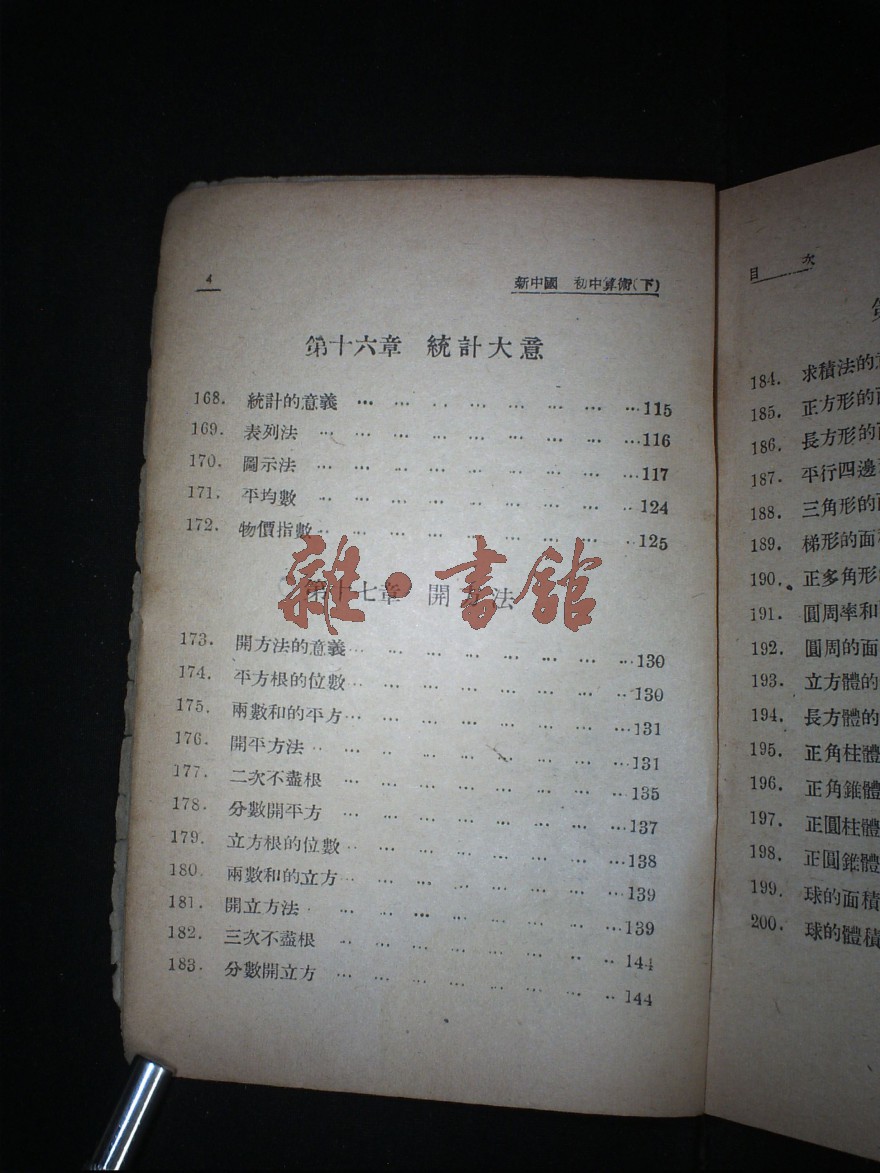 4 新中國 初中算術(下)
第十六章 統計大意
168. 統計的意義 ... 115
169. 表列法 ... 116
170. 圖示法 ... 117
171. 平均數 ... 124
172. 物價指數 ... 125
第十七章 開方法
雜·書館
173. 開方法的意義 ... 130
174. 平方根的位數 ... 130
175. 兩數和的平方 ... 131
176. 開平方法 ... 131
177. 二次不盡根 ... 135
178. 分數開平方 ... 137
179. 立方根的位數 ... 138
180. 兩數和的立方 ... 139
181. 開立方法 ... 139
182. 三次不盡根 ... 144
183. 分數開立方 ... 144
目 次
184. 求積法的
185. 正方形的
186. 長方形的
187. 平行四邊
188. 三角形的
189. 梯形的面
190. 正多角形
191. 圓周率和
192. 圓周的面
193. 立方體的
194. 長方體的
195. 正角柱體
196. 正角錐體
197. 正圓柱體
198. 正圓錐體
199. 球的面積
200. 球的體積